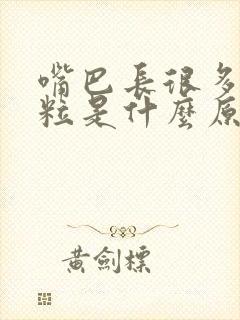 嘴巴長很多
粒是什麼原
黃劍標